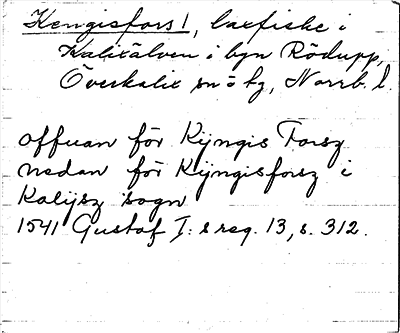 Kengisfors 1, laxfiske i
Kalixälven i byn Rödupp,
Överkalix sn o tg, Norrb. l.
offuan för Kijngis Forsz
nedan för Kijngisforsz i
Kalijsz sogn
1541 Gustaf I:s reg. 13, s. 312.